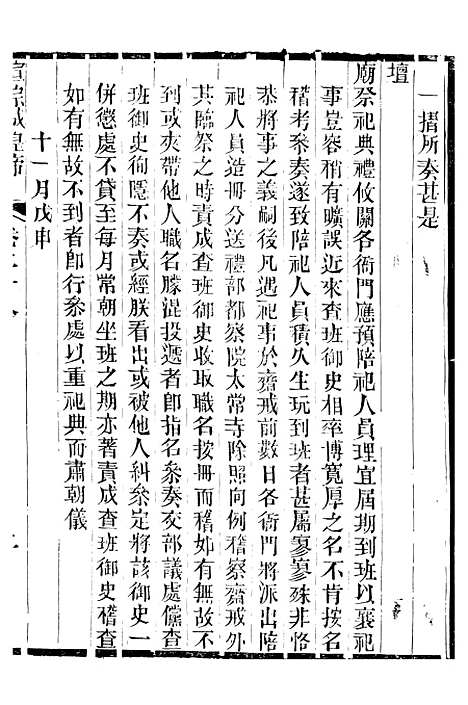 一摺所奏甚是
壇
廟祭祀典禮攸關各衙門應預陪祀人員理宜屆期到班以襄祀
事豈容稍有曠誤近來查班御史相率博寬厚之名不肯按名
稽考叅奏遂致陪祀人員積久生玩到班者甚屬寥寥殊非恪
恭將事之義嗣後凡遇祀事於齋戒前數日各衙門將派出陪
祀人員造冊分送禮部都察院太常寺除照向例稽察齋戒外
其臨祭之時責成查班御史收取職名按冊而稽如有無故不
到或夾帶他人職名朦混投遞者卽指名叅奏交部議處儻查
班御史徇隱不奏或經朕看出或被他人糾叅定將該御史一
併懲處不貸至每月常朝坐班之期亦著責成查班御史稽查
如有無故不到者卽行叅處以重祀典而肅朝儀
十一月戊申
宣宗成皇帝